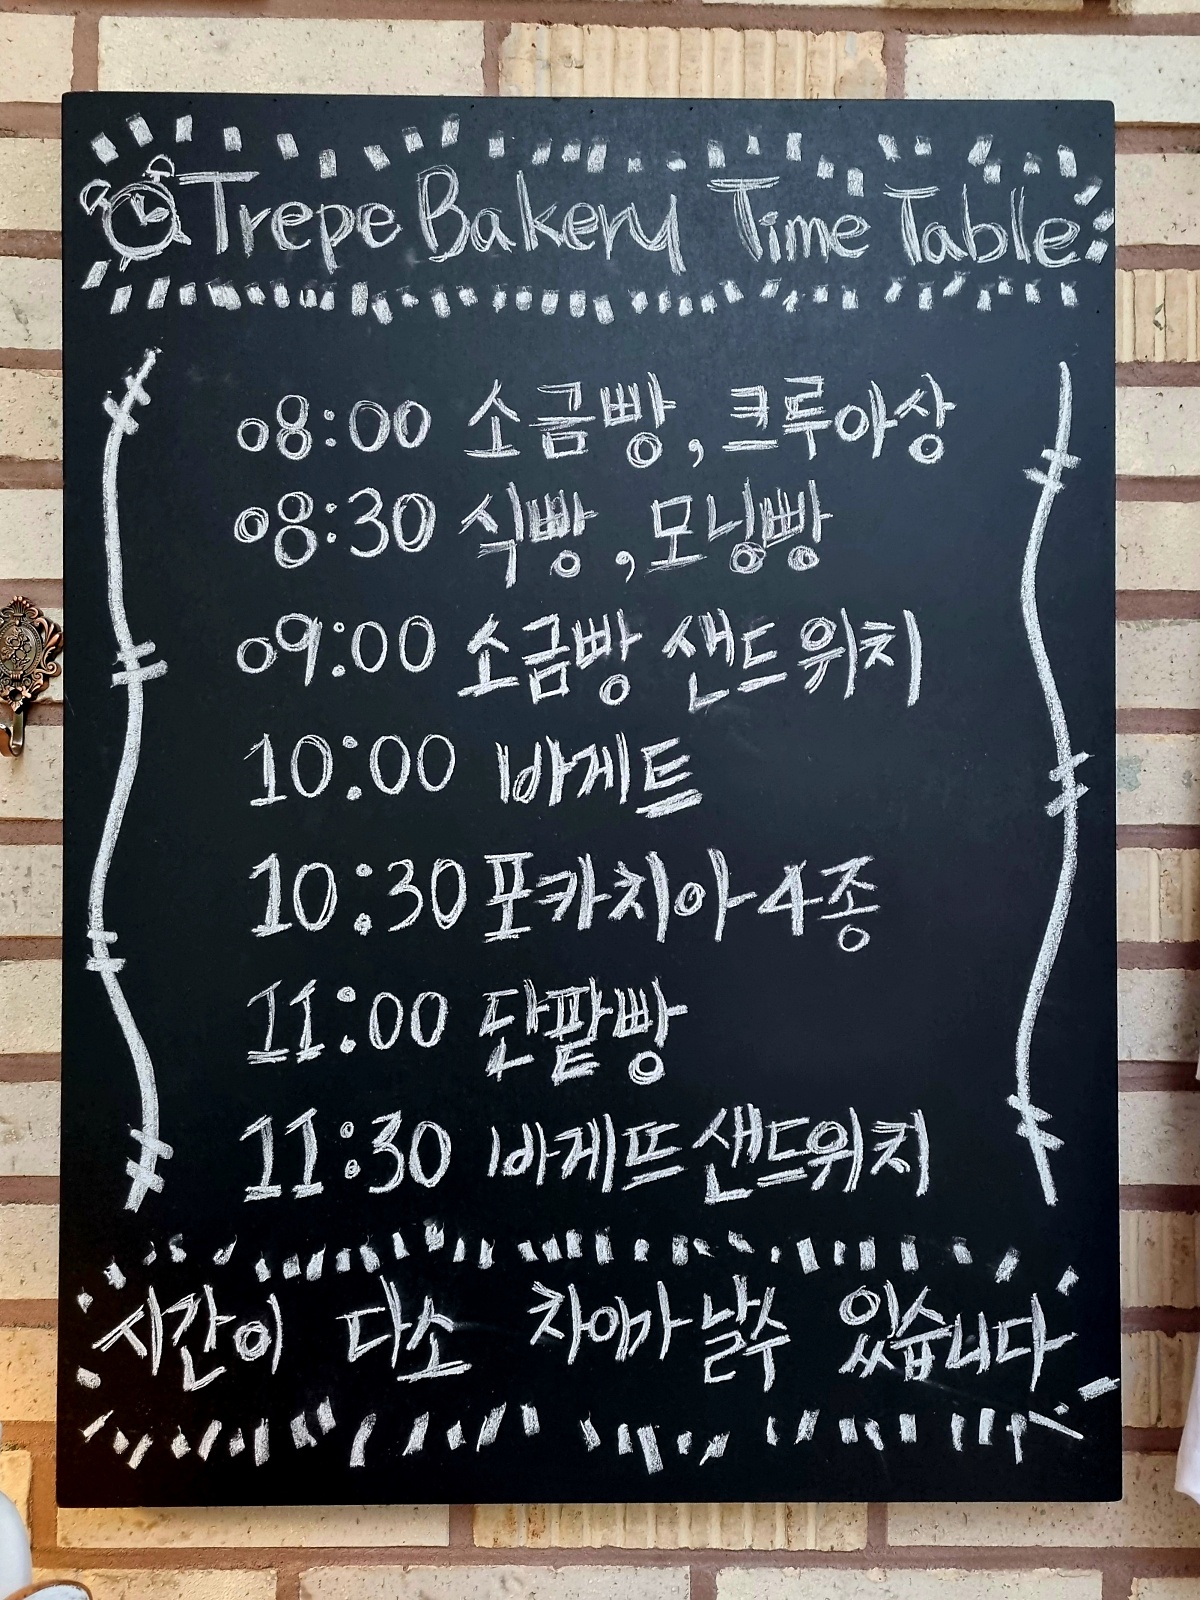 Trepe Bakery Time Table
08:00 소금빵, 크루아상
08:30 식빵, 모닝빵
09:00 소금빵 샌드위치
10:00 바게트
10:30 포카치아 4종
11:00 단팥빵
11:30 바게뜨 샌드위치
시간이 다소 차이가 날수 있습니다